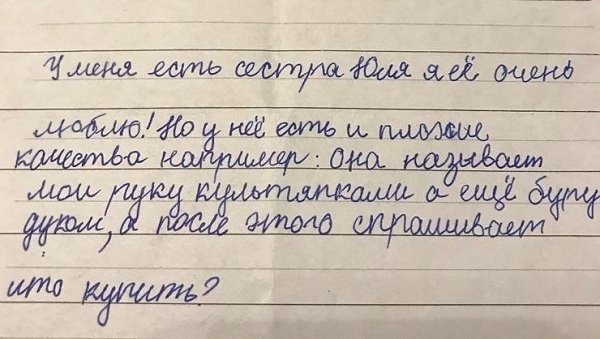 У меня есть сестра Юля я её очень
люблю! Но у неё есть и плохие
качества например: она называет
мои руку культяпками а ещё буру
дуком, а после этого спрашивает
что купить?